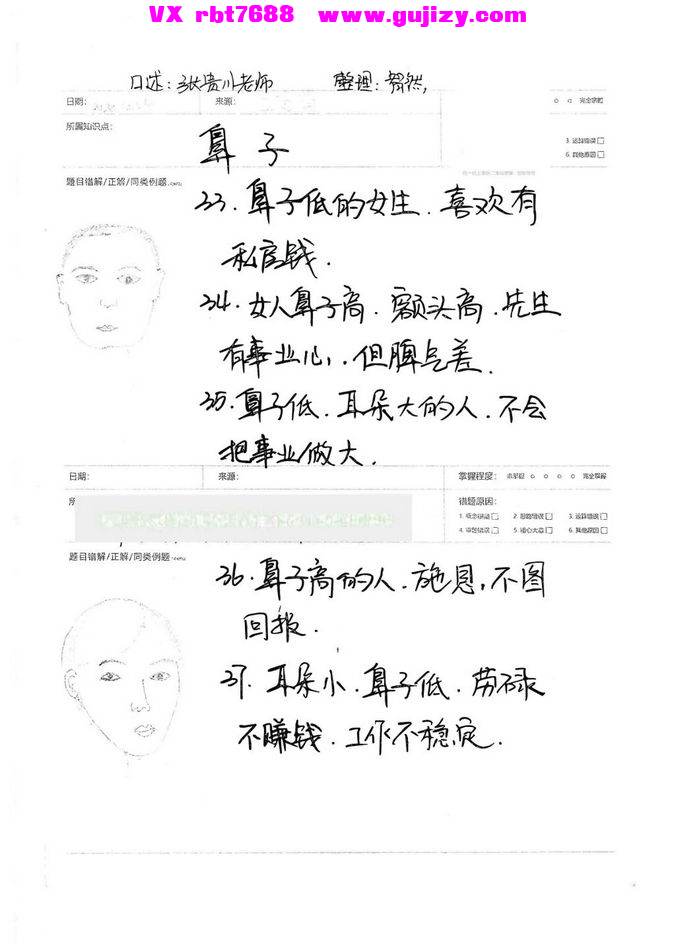 VX rbt7688 www.gujizy.com
口述：张贵川老师 整理：智然，
日期： 来源： 完全掌握
所属知识点：
鼻子
3. 运算错误
6. 其他原因
题目错解/正解/同类例题
33. 鼻子低的女生. 喜欢有
私房钱.
34. 女人鼻子高. 额头高. 先生
有事业心, 但脾气差.
35. 鼻子低. 耳朵大的人. 不会
把事业做大.
日期： 来源： 掌握程度： 未掌握 完全掌握
错题原因：
1. 概念错误 2. 思路错误 3. 运算错误
4. 审题错误 5. 粗心大意 6. 其他原因
题目错解/正解/同类例题
36. 鼻子高的人. 施恩, 不图
回报.
37. 耳朵小. 鼻子低. 劳碌
不赚钱. 工作不稳定.